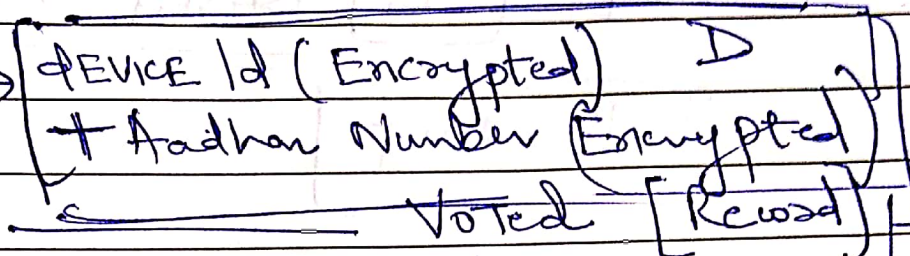 dEVICE Id (Encrypted) D
+ Aadhar Number (Encrypted)
Voted [Record]